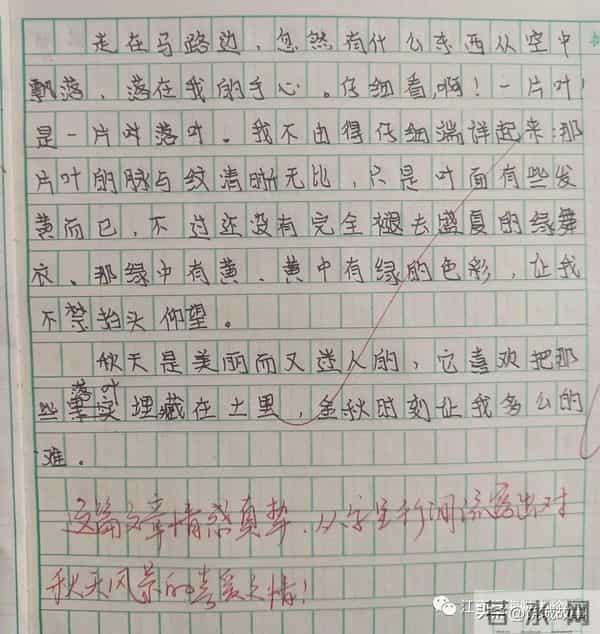 走在马路边，忽然有什么东西从空中
飘落，落在我的手心。仔细看，啊！一片叶！
是一片叶落叶。我不由得仔细端详起来：那
片叶的脉与纹清晰无比，只是叶面有些发
黄而已，不过还没有完全褪去盛夏的绿舞
衣。那绿中有黄、黄中有绿的色彩，让我
不禁抬头仰望。
秋天是美丽而又迷人的，它喜欢把那
落叶
些果实埋藏在土里，金秋时刻让我多么的
难。
这篇文章情感真挚，从字里行间流露出对
秋天风景的喜爱之情！